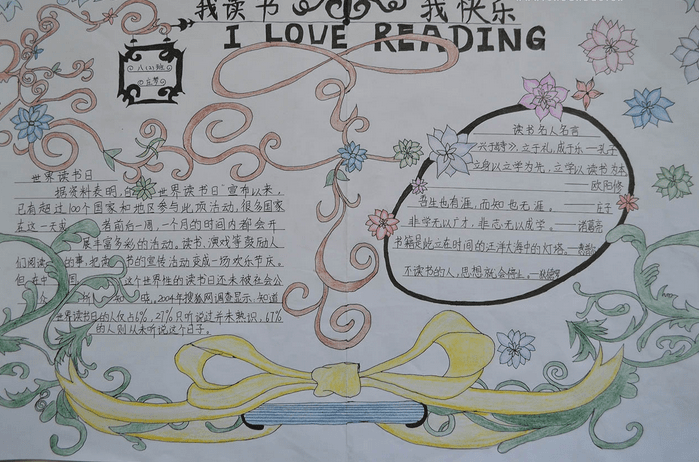 我读书 我快乐
I LOVE READING
八(2)班
世界读书日
据资料表明,自"世界读书日"宣布以来,
已有超过100个国家和地区参与此项活动,很多国家
在这一天或者前后一周,一个月的时间内都会开
展丰富多彩的活动。读书、演戏等鼓励人
们阅读的事,把读书的宣传活动变成一场欢乐节庆。
但在中国,这个世界性的读书日还未被社会公
2004年搜狐网调查显示,知道
世界读书日的人仅占6%,27%只听说过并未熟识,67%
的人则从未听说这个日子。
读书名人名言
兴于《诗》,立于礼,成于乐——孔子
立身以立学为先,立学以读书为本
——欧阳修
吾生也有涯,而知也无涯。——庄子
非学无以广才,非志无以成学。——诸葛亮
书籍是屹立在时间的汪洋大海中的灯塔。
不读书的人,思想就会停止。——狄德罗